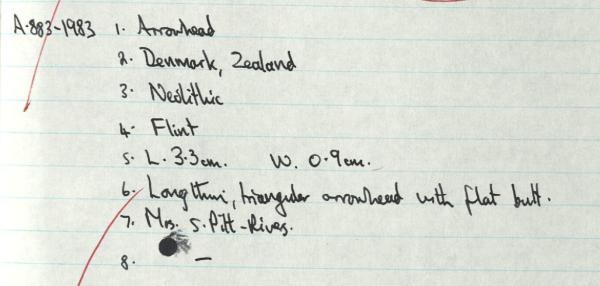 A.883-1983 1. Arrowhead
2. Denmark, Zealand
3. Neolithic
4. Flint
5. L. 3.3cm. W. 0.9cm.
6. Long thin, triangular arrowhead with flat butt.
7. Mrs. S. Pitt-Rivers.
8. —